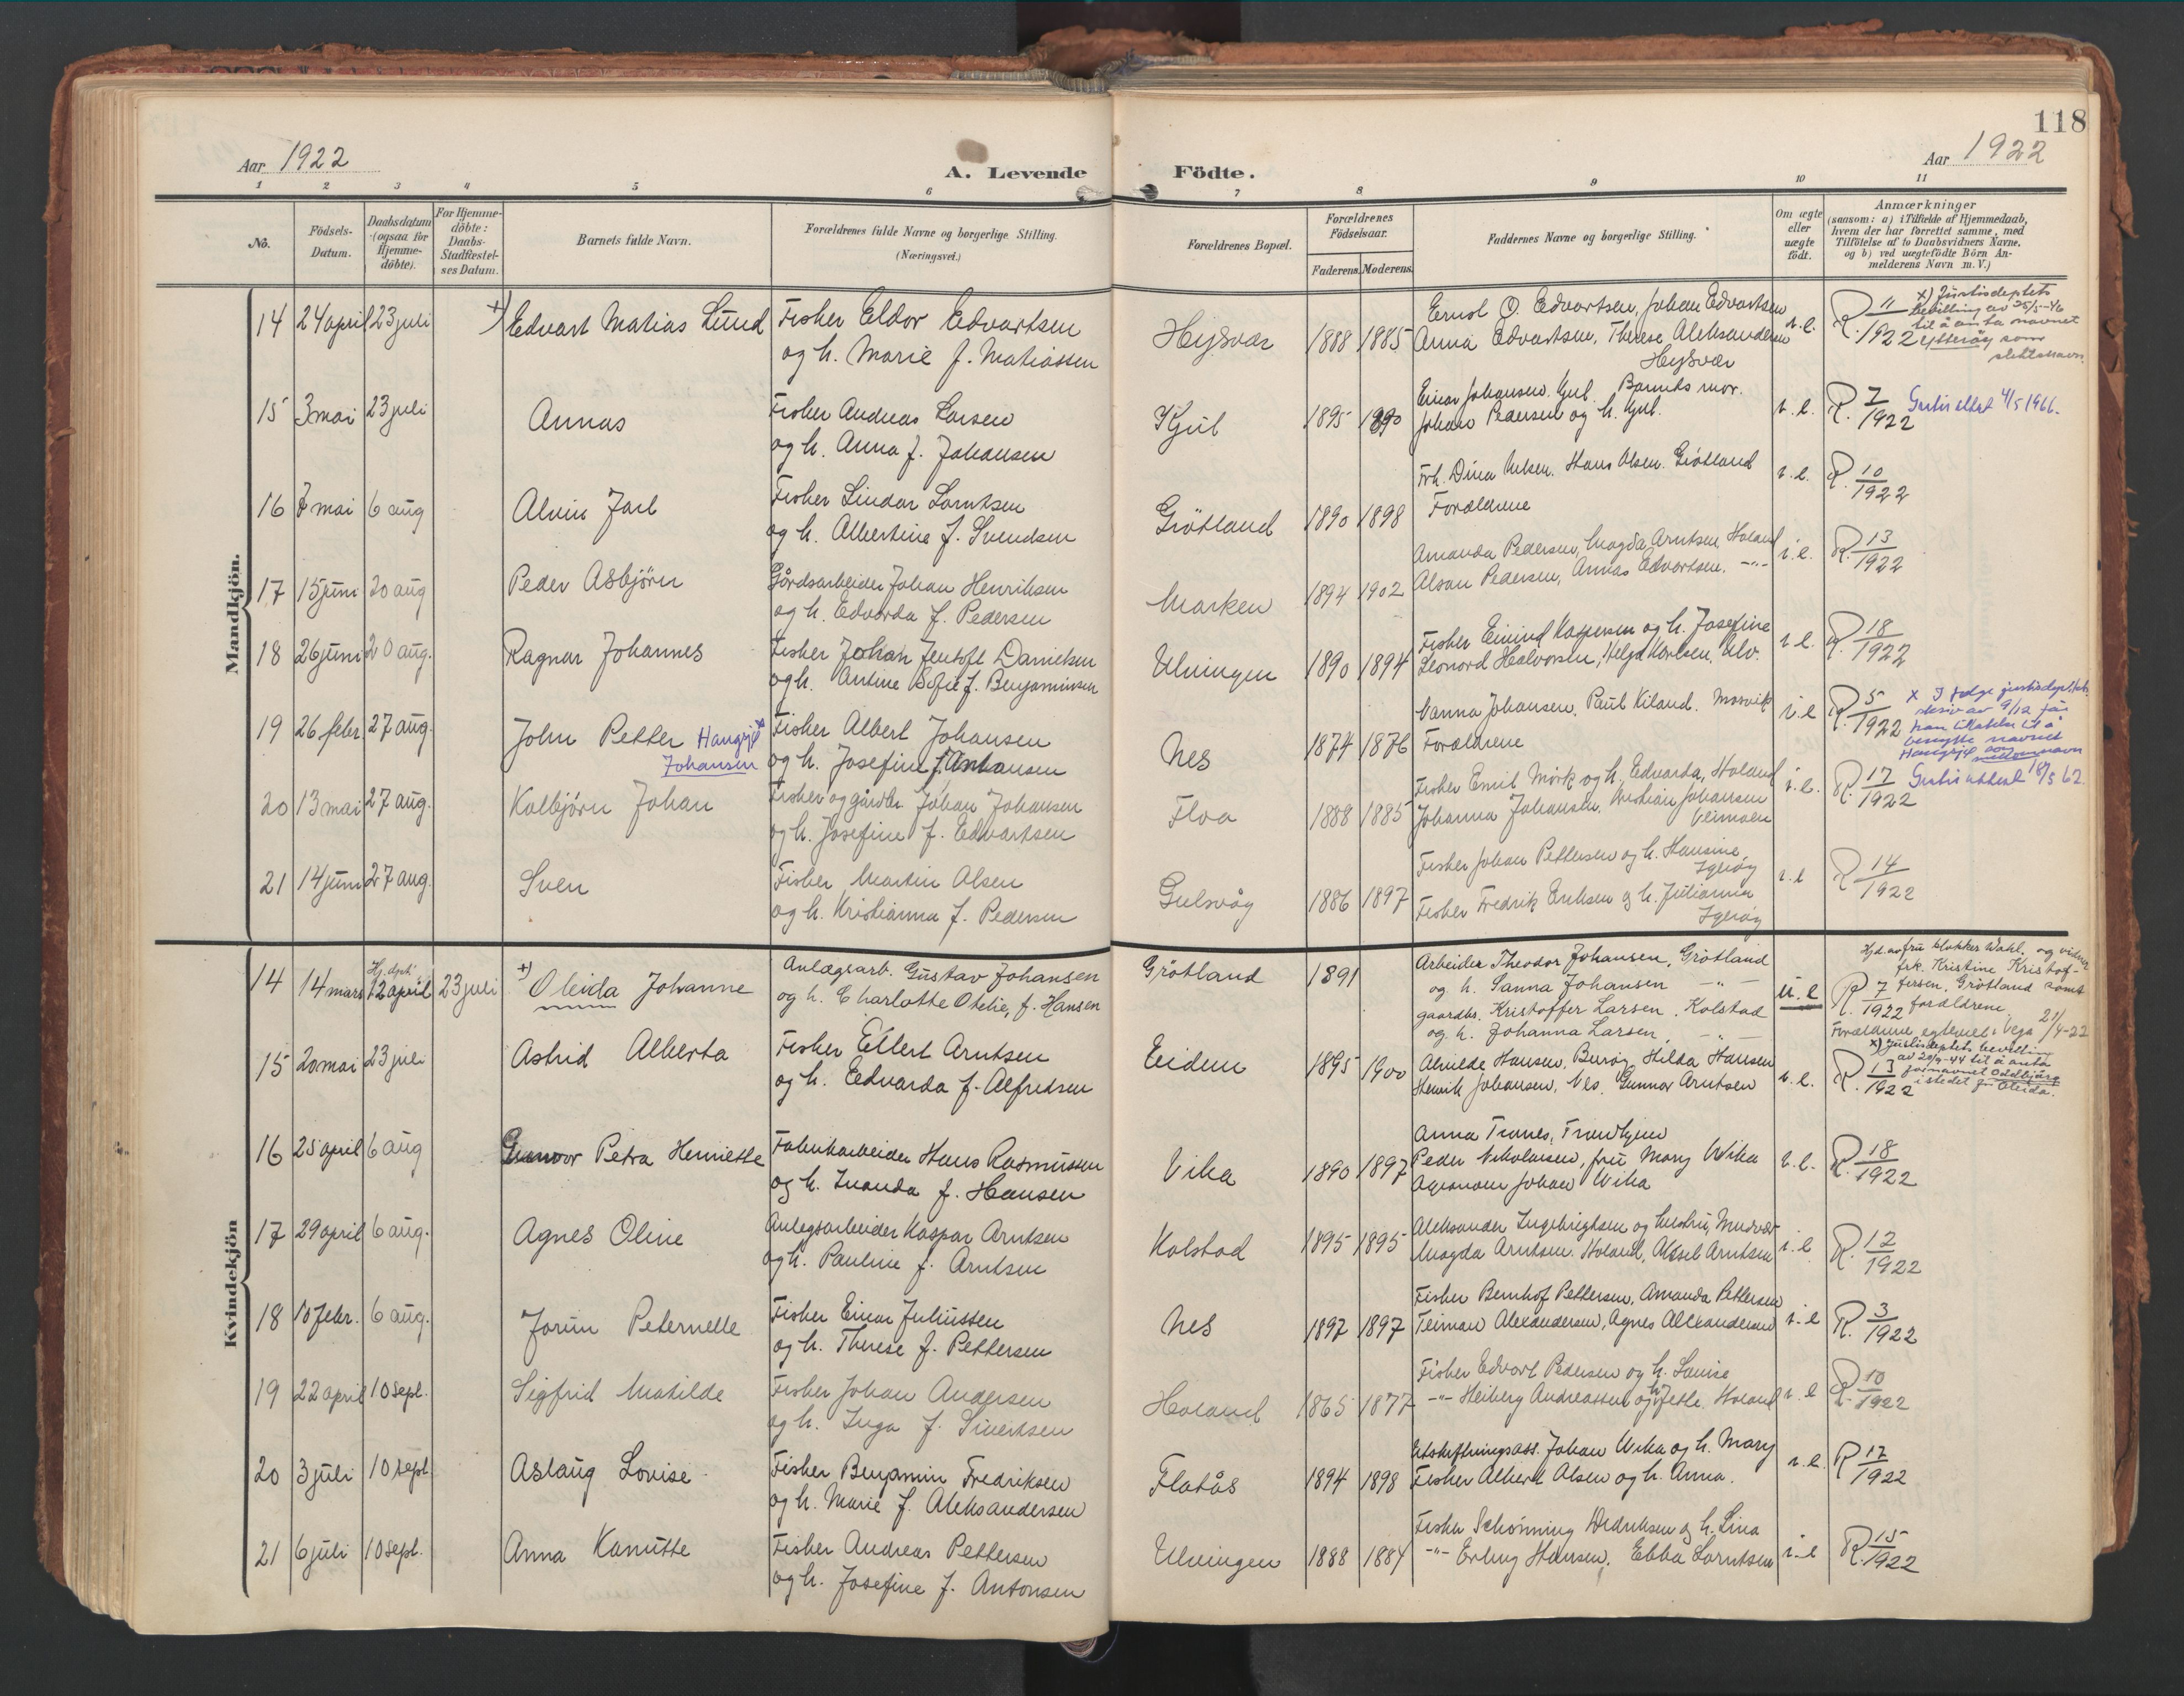 118
Aar 1922
A. Levende Födte.
Aar 1922
1 2 3 4 5 6 7 8 9 10 11
No.
Födsels-Datum.
Daabsdatum (ogsaa for Hjemme-döbte).
For Hjemme-döbte: Daabs-Stadfæstel-ses Datum.
Barnets fulde Navn.
Forældrenes fulde Navne og borgerlige Stilling.
(Næringsvei.)
Forældrenes Bopæl.
Forældrenes Födselsaar.
Faderens. Moderens.
Faddernes Navne og borgerlige Stilling.
Om ægte eller uægte födt.
Anmærkninger
(saasom: a) i Tilfælde af Hjemmedaab,
hvem der har forrettet samme, med
Tilföielse af to Daabsvidners Navne,
og b) ved uægtefödte Börn An-
melderens Navn m. V.)
Mandkjön.
14 24 april 23 juli +) Edvart Matias Lund
Fisker Eldor Edvartsen
og h. Marie f. Matiassen
Heysvær 1888 1885
Ernst O. Edvartsen, Johan Edvartsen
Anna Edvartsen, Therese Aleksandersen
Heysvær
i.e.
R. 11/1922
x) Justisdeptets
bevilling av 25/5-46
til å anta navnet
Ytterøy som
slektsnavn.
15 3 mai 23 juli Annas
Fisker Andreas Larsen
og h. Anna f. Johansen
Kjul 1895 1890
Einar Johansen Kjul. Barnets mor.
Johan Pedersen og h. Kjul.
i.e.
R. 7/1922 4/5 1966.
16 7 mai 6 aug Alvin Jarl
Fisker Lindar Lorntsen
og h. Albertine f. Svendsen
Grötland 1890 1898
Frk. Dina Nilsen. Hans Olsen. Grötland
Forældrene
i.e.
R. 10/1922
17 15 juni 20 aug Peder Asbjörn
Gårdsarbeider Johan Henriksen
og h. Edvarda f. Pedersen
Marken 1894 1902
Amanda Pedersen, Magda Arntsen, Holand
Alsan Pedersen, Annas Edvartsen. -"-
i.e.
R. 13/1922
18 26 juni 20 aug. Ragnar Johannes
Fisker Johan Jentoft Danielsen
og h. Antine Sofie f. Benjaminsen
Ulvingen 1890 1894
Fisker Eivind Kaspersen og h. Josefine
Leonard Halvorsen, Helga Karlsen, Ulv.
i.e.
R. 18/1922
19 26 febr 27 aug. John Petter Haugrys +
Johansen
Fisker Albert Johansen
og h. Josefine f. Antonsen
Nes 1874 1876
Nanna Johansen, Paul Kiland. Mosvik
Forældrene
i.e
R. 5/1922
x I følge justisdeptets
skriv av 9/12 får
han tillatelse til å
benytte navnet
som mellomnavn
20 13 mai 27 aug. Kolbjörn Johan
Fisker og gårdbr. Johan Johansen
og h. Josefine f. Edvartsen
Floa 1888 1885
Fisker Emil Mörk og h. Edvarda, Holand
Johanna Johansen, Kristian Johansen
i.e.
R. 17/1922 18/5 62
21 14 juni 27 aug. Sven
Fisker Martin Olsen
og h. Kristianna f. Pedersen
Gulsvåg 1886 1897
Fisker Johan Pettersen og h. Hansine
Igeröy
Fisker Fredrik Eriksen og h. Julianna
Igeröy
i.e
R. 14/1922
Kvindekjön
14 14 mars Hj. døpt 12 april 23 juli +) Oleida Johanne
Anlægsarb. Gustav Johansen
og h. Charlotte Otelie, f. Hansen
Grötland 1891
Arbeider Theodor Johansen, Grötland
og h. Sanna Johansen -"-
gaardbr. Kristoffer Larsen, Kolstad
og h. Johanna Larsen, -"-
u.e
R. 7/1922
Hjd. av fru klokker Wahl. og vidner
frk. Kristine Kristof-
fersen, Grötland samt
forældrene.
Forældrene egteviet i Vega 21/4-22
15 20 mai 23 juli Astrid Alberta
Fisker Ellert Arntsen
og h. Edvarda f. Alfredsen
Eidem 1895 1900
Alvilde Hansen, Buröy, Hilda Hansen
Henrik Johansen, Nes. Gunnar Arntsen
i.e.
R. 13/1922
x) Justisdeptets bevilling
av 20/9-44 til å anta
fornavnet Oddbjørg
istedet for Oleida.
16 25 april 6 aug Gunvor Petra Henriette
Fabrikarbeider Hans Rasmussen
og h. Inanda f. Hansen
Vika 1890 1897
Anna Tranes, Trondhjem
Peder Nikolaisen, fru Mary Wika
Agronom Johan Wika
i.e.
R. 18/1922
17 29 april 6 aug. Agnes Oline
Anlegsarbeider Kaspar Arntsen
og h. Pauline f. Arntsen
Kolstad 1895 1895
Aleksander Ingebrigtsen og hustru, Mudvær
Magda Arntsen. Holand, Aksel Arntsen
i.e
R. 12/1922
18 10 febr. 6 aug. Jorun Peternelle
Fisker Einar Juliussen
og h. Therese f. Pettersen
Nes 1897 1897
Fisker Bernhof Pettersen, Amanda Pettersen
Teiman Alexandersen, Agnes Alexandersen
i.e
R. 3/1922
19 22 april 10 sept. Sigfrid Matilde
Fisker Johan Andersen
og h. Inga f. Sivertsen
Holand 1865 1877
Fisker Edvart Pedersen og h. Lovise
-"- Heiberg Andreassen og h. Jette. Holand
i.e
R. 10/1922
20 3 juli 10 sept Aslaug Lovise
Fisker Benjamin Fredriksen
og h. Marie f. Aleksandersen
Flatås 1894 1898
Utskiftningsass. Johan Wika og h. Mary
Fisker Albert Olsen og h. Anna.
i.e.
R 17/1922
21 6 juli 10 sept. Anna Kanutte
Fisker Andreas Pettersen
og h. Josefine f. Antonsen
Ulvingen 1888 1884
Fisker Schönning Didriksen og h. Lina
-"- Erling Hansen, Ebba Lorntsen
i.e
R. 15/1922